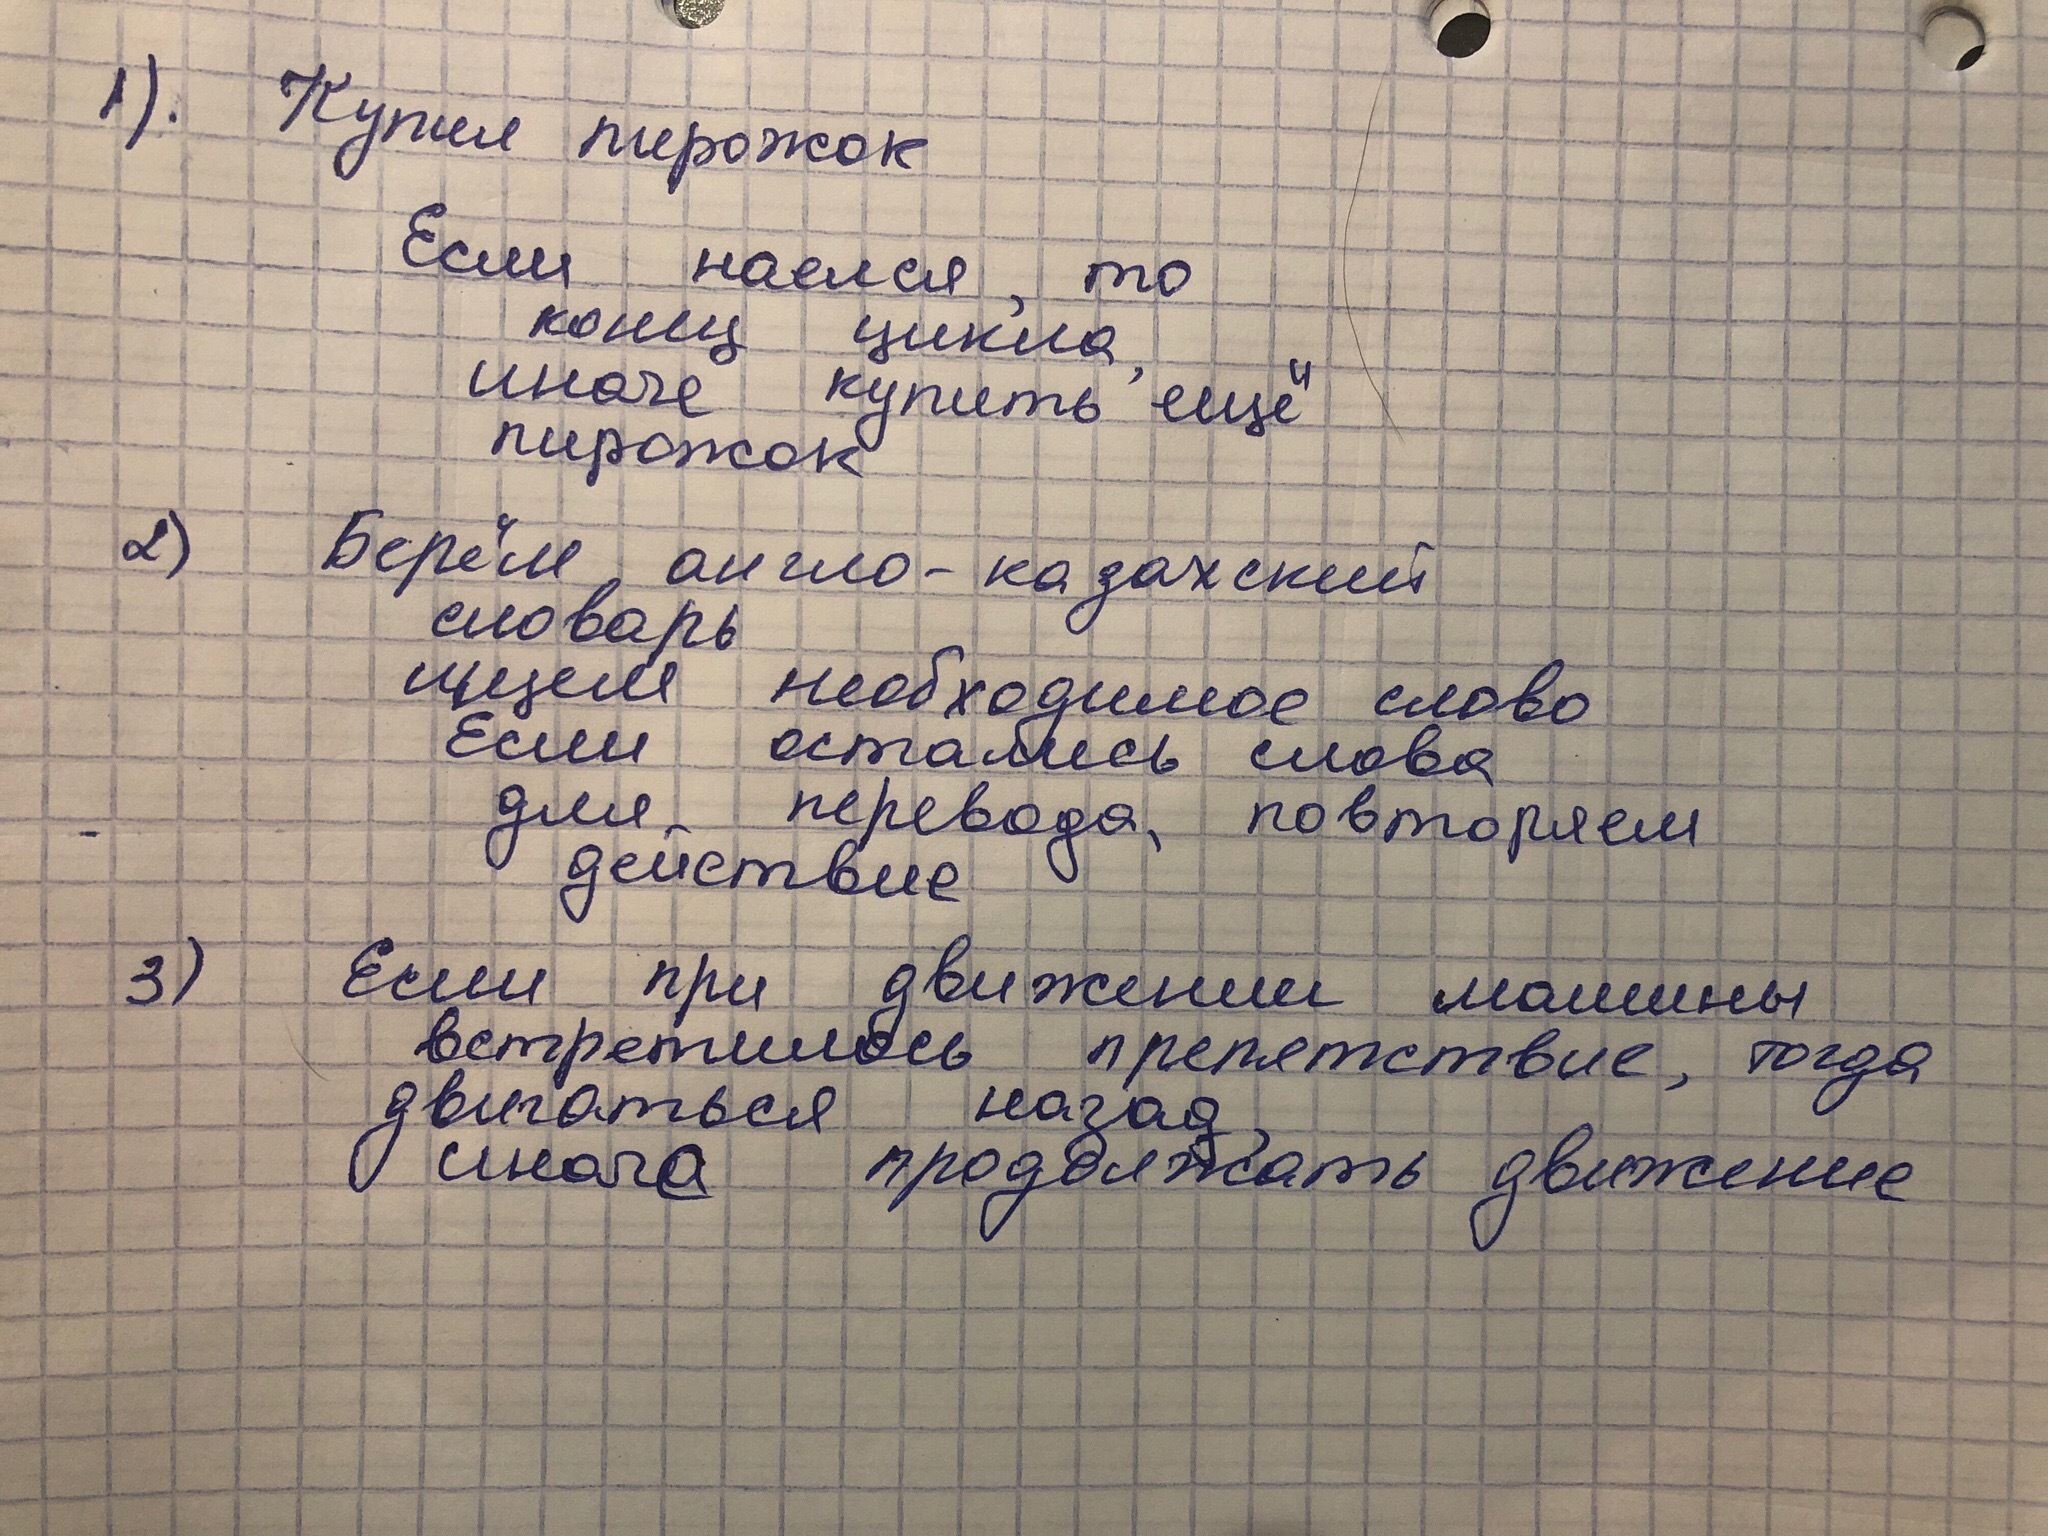 1). Купил пирожок
Если наелся, то
конец цикла,
иначе купить ещё
пирожок
2) Берём англо-казахский
словарь
ищем необходимое слово
Если остались слова
для перевода, повторяем
действие
3) Если при движении машины
встретилось препятствие, тогда
двигаться назад,
иначе продолжать движение